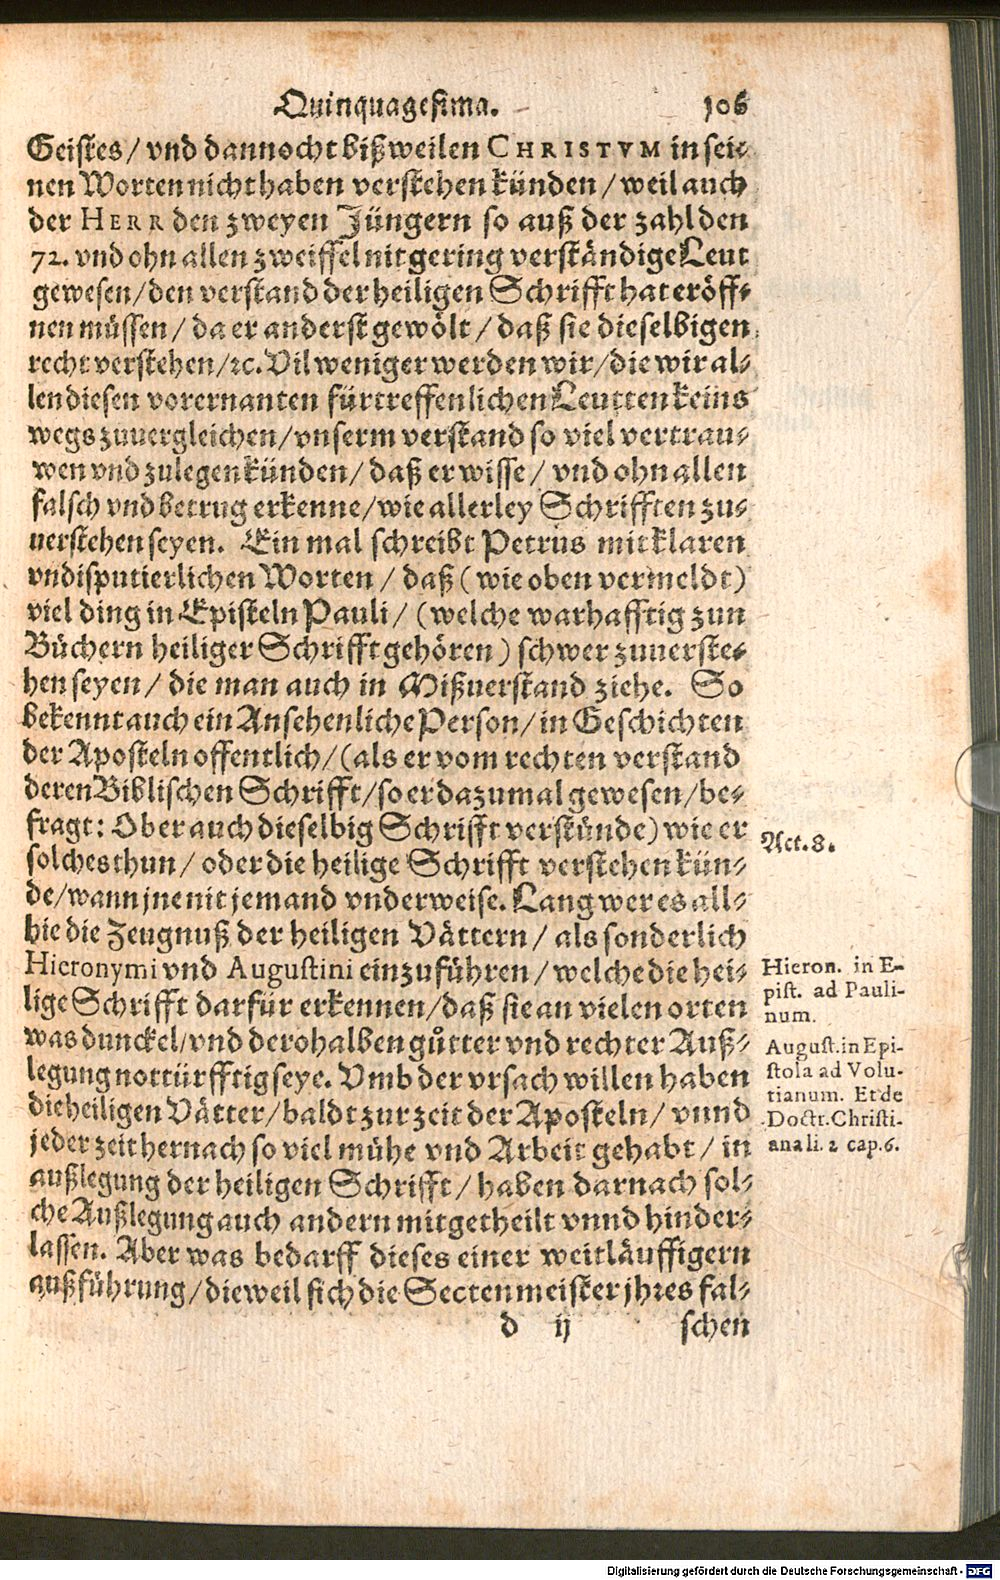 Quinquagesima. 106
Geistes / vnd dannocht bißweilen CHRISTVM in sei-
nen Worten nicht haben verstehen künden / weil auch
der HERR den zweyen Jüngern so auß der zahl den
72. vnd ohn allen zweiffel nit gering verständige Leut
gewesen / den verstand der heiligen Schrifft hat eröff-
nen müssen / da er anderst gewölt / daß sie dieselbigen
recht verstehen / ꝛc. Vil weniger werden wir / die wir al-
len diesen vorernanten fürtreffenlichen Leutten keins
wegs zuuergleichen / vnserm verstand so viel vertrau-
wen vnd zulegen künden / daß er wisse / vnd ohn allen
falsch vnd betrug erkenne / wie allerley Schrifften zu-
uerstehen seyen. Ein mal schreibt Petrus mit klaren
vndisputierlichen Worten / daß (wie oben vermeldt)
viel ding in Episteln Pauli / (welche warhafftig zun
Büchern heiliger Schrifft gehören) schwer zuuerste-
hen seyen / die man auch in Mißuerstand ziehe. So
bekennt auch ein Ansehenliche Person / in Geschichten
der Aposteln offentlich / (als er vom rechten verstand
deren Biblischen Schrifft / so er dazumal gewesen / be-
fragt: Ob er auch dieselbig Schrifft verstünde) wie er
solches thun / oder die heilige Schrifft verstehen kün-
de / wann jne nit jemand vnderweise. Lang wer es all-
hie die Zeugnuß der heiligen Vättern / als sonderlich
Hieronymi vnd Augustini einzuführen / welche die hei-
lige Schrifft darfür erkennen / daß sie an vielen orten
was dunckel / vnd derohalben gůtter vnd rechter Auß-
legung nottürfftig seye. Vmb der vrsach willen haben
die heiligen Vätter / baldt zur zeit der Aposteln / vnnd
jeder zeit hernach so viel mühe vnd Arbeit gehabt / in
außlegung der heiligen Schrifft / haben darnach sol-
che Außlegung auch andern mitgetheilt vnnd hinder-
lassen. Aber was bedarff dieses einer weitläuffigern
außführung / dieweil sich die Sectenmeister jhres fal-
d ij schen
Act. 8.
Hieron. in E-
pist. ad Pauli-
num.
August. in Epi-
stola ad Volu-
tianum. Et de
Doctr. Christi-
ana li. 2 cap. 6.
Digitalisierung gefördert durch die Deutsche Forschungsgemeinschaft - DFG